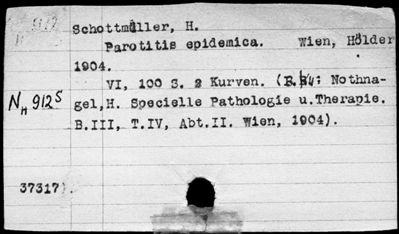 Schottmüller, H.
Parotitis epidemica. Wien, Hölder
1904.
VI, 100 S. 2 Kurven. (R. 4: Nothna-
N_H 912^5
gel, H. Specielle Pathologie u. Therapie.
B.III, T.IV, Abt.II. Wien, 1904).
37317).